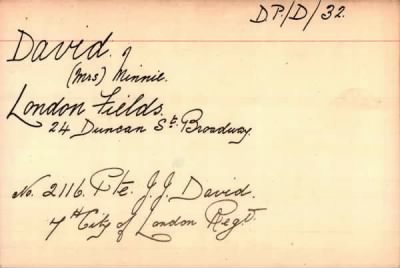 DP/D/32.
David.
(Mrs) Minnie.
London Fields.
24 Duncan St. Broadway.
No. 2116. Pte. J.J. David.
7th City of London Regt.